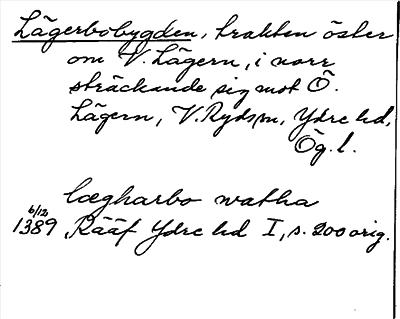 Lägerbobygden, trakten öster
om V. Lägern, i norr
sträckande sig mot Ö.
Lägern, V. Ryds sn, Ydre hd,
Ög. l.
lægharbo watha
6/12 1389, Rääf Ydre hd I, s. 200 orig.